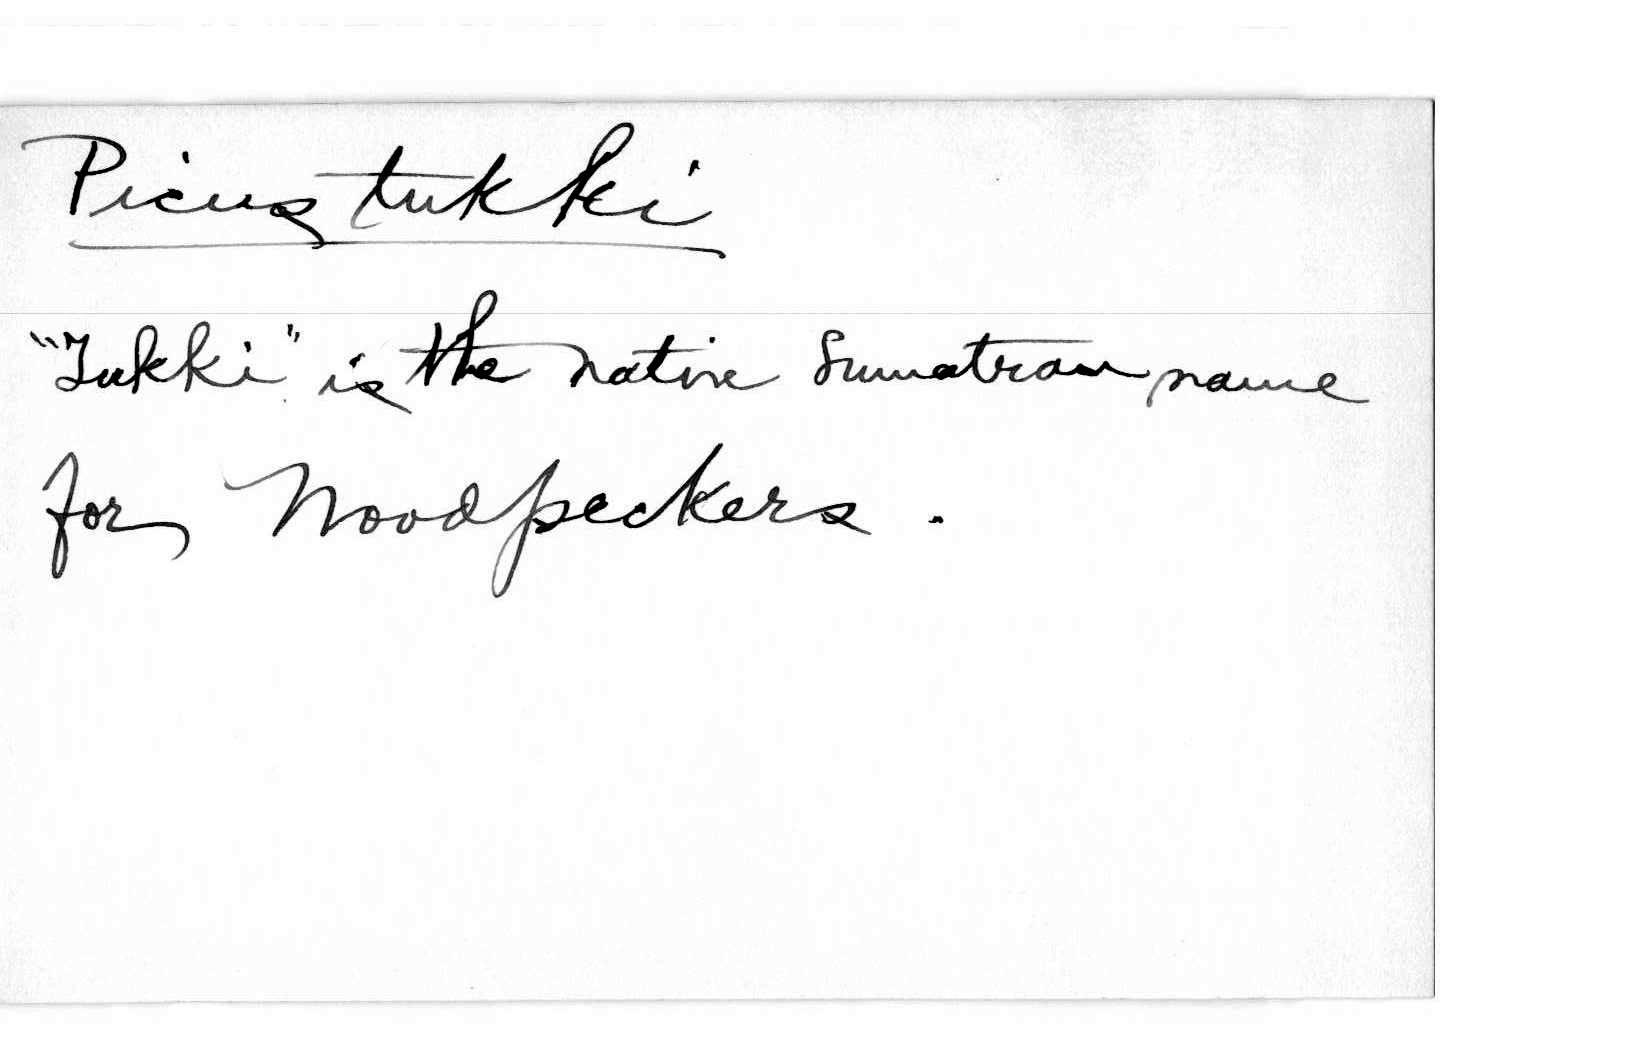 Picus tukki
"Tukki" is the native Sumatran name
for Woodpeckers.